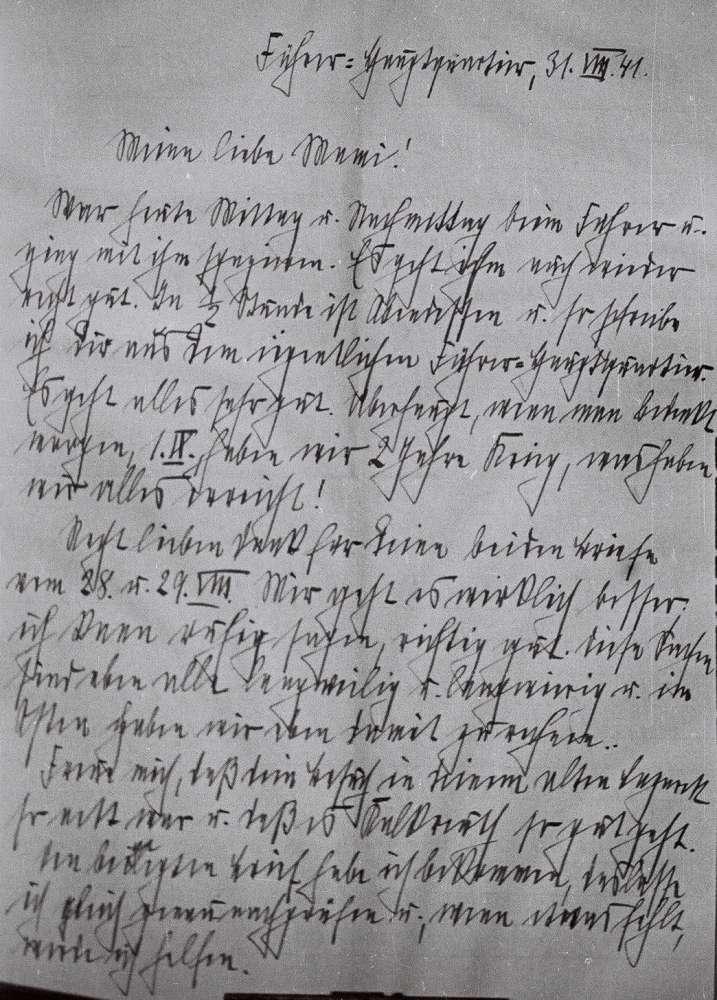 Führer-Hauptquartier, 31. VIII. 41.
Meine liebe Mami!
War heute Mittag u. Nachmittag beim Führer u.
ging mit ihm spazieren. Es geht ihm auch wieder
recht gut. In ½ Stunde ist Abendessen u. so schreibe
ich Dir aus dem eigentlichen Führer-Hauptquartier.
Es geht alles sehr gut. Überhaupt, wenn man bedenkt
morgen, 1. IX., haben wir 2 Jahre Krieg, was haben
wir alles erreicht!
Recht lieben Dank für Deine beiden Briefe
vom 28. u. 29. VIII. Mir geht es wirklich besser,
ich kann ruhig sagen, richtig gut. Diese Sachen
sind eben alle langweilig u. langwierig u. im
Osten haben wir eben damit zu rechnen.
Freue mich, daß Dein Besuch in Deinem alten Lazarett
so nett war u. daß es Kalkreuth so gut geht.
Den Brief habe ich bekommen, das lasse
ich gleich genau nachprüfen u., wenn etwas fehlt,
werde ich helfen.